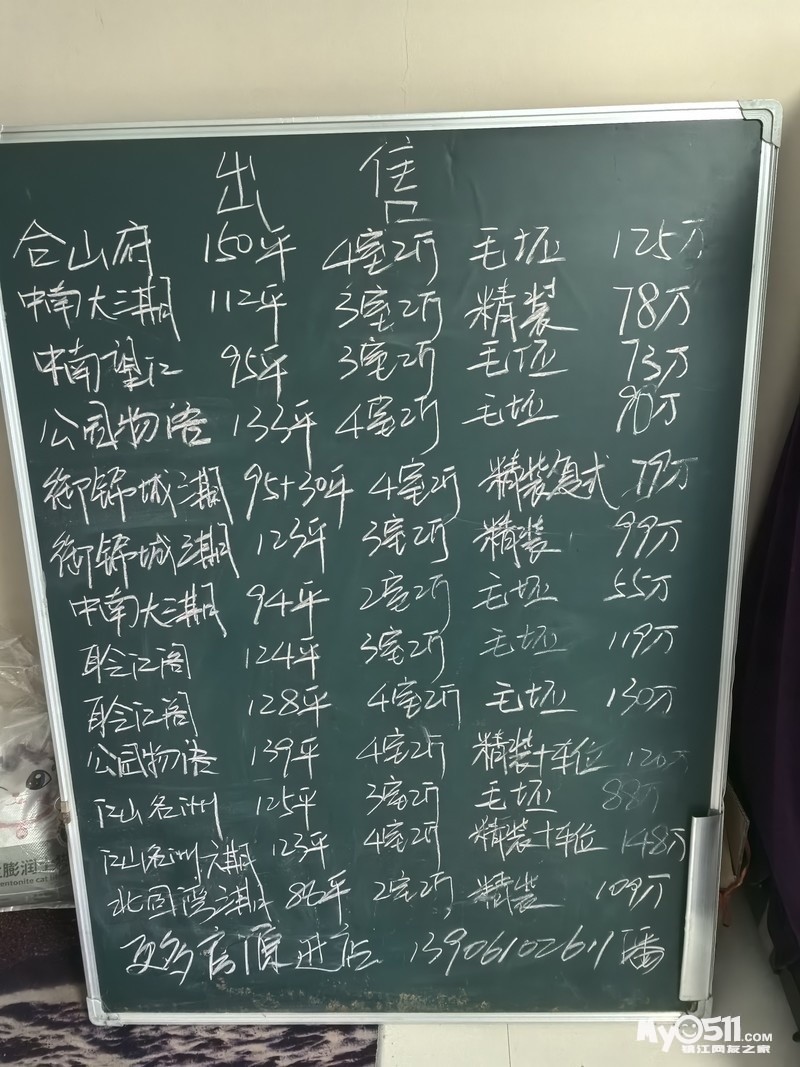 出 售
合山府 150平 4室2厅 毛坯 125万
中南大三期 112平 3室2厅 精装 78万
中南望江 95平 3室2厅 毛坯 73万
公园物语 133平 4室2厅 毛坯 90万
御锦城三期 95+30平 4室2厅 精装复式 79万
御锦城三期 123平 3室2厅 精装 99万
中南大三期 94平 2室2厅 毛坯 55万
聆江阁 124平 3室2厅 毛坯 119万
聆江阁 128平 4室2厅 毛坯 130万
公园物语 139平 4室2厅 精装+车位 120万
江山名洲 125平 3室2厅 毛坯 88万
江山名洲六期 123平 4室2厅 精装+车位 148万
北固湾三期 86平 2室2厅 精装 109万
更多房源进店 13906102611
膨润
entonite cat
MyO511.COM
镇江网友之家